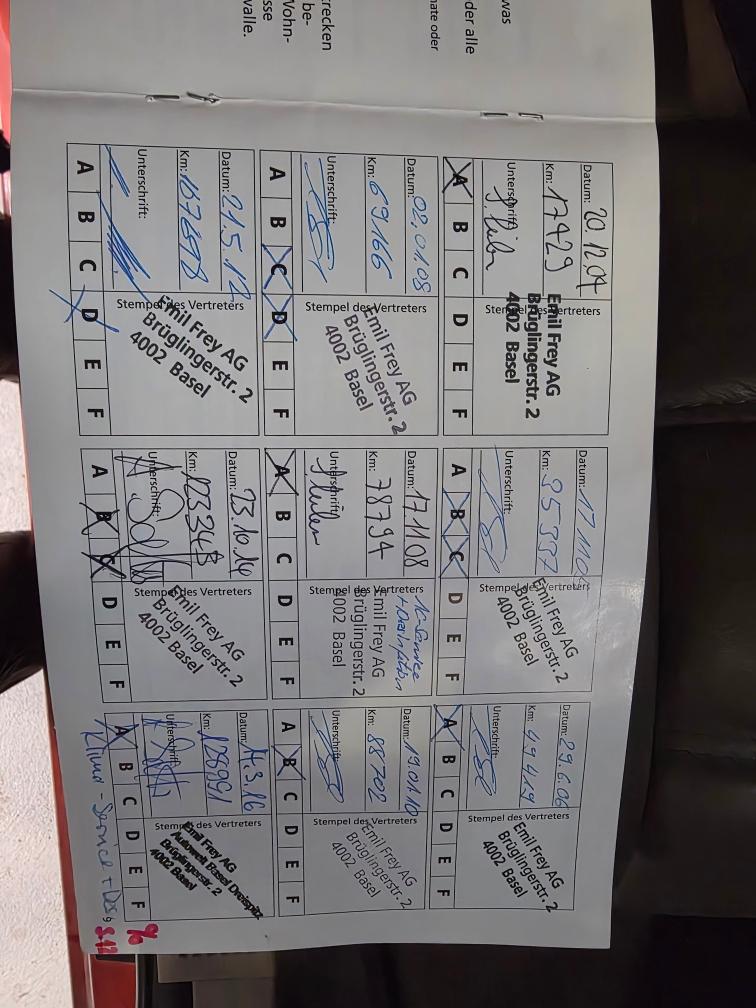 was
der alle
nate oder
recken
be-
Wohn-
sse
valle.
Datum: 20.12.04
Km: 17429
Unterschrift:
Stempel des Vertreters
Emil Frey AG
Brüglingerstr. 2
4002 Basel
A B C D E F
Datum: 17.11.05
Km: 35337
Unterschrift:
Stempel des Vertreters
Emil Frey AG
Brüglingerstr. 2
4002 Basel
A B C D E F
Datum: 29.6.06
Km: 49419
Unterschrift:
Stempel des Vertreters
Emil Frey AG
Brüglingerstr. 2
4002 Basel
A B C D E F
Datum: 02.01.08
Km: 69166
Unterschrift:
Stempel des Vertreters
Emil Frey AG
Brüglingerstr. 2
4002 Basel
A B C D E F
Datum: 17.11.08
Km: 78794
Unterschrift:
Stempel des Vertreters
Emil Frey AG
Brüglingerstr. 2
4002 Basel
A B C D E F
Datum: 19.01.10
Km: 88702
Unterschrift:
Stempel des Vertreters
Emil Frey AG
Brüglingerstr. 2
4002 Basel
A B C D E F
Datum: 21.5.12
Km: 107678
Unterschrift:
Stempel des Vertreters
Emil Frey AG
Brüglingerstr. 2
4002 Basel
A B C D E F
Datum: 23.10.14
Km: 123343
Unterschrift:
Stempel des Vertreters
Emil Frey AG
Brüglingerstr. 2
4002 Basel
A B C D E F
Datum: 14.3.16
Km: 128991
Unterschrift:
Stempel des Vertreters
Emil Frey AG
Autowelt Basel Dreispitz
Brüglingerstr. 2
4002 Basel
A B C D E F
Klima-Service +
%